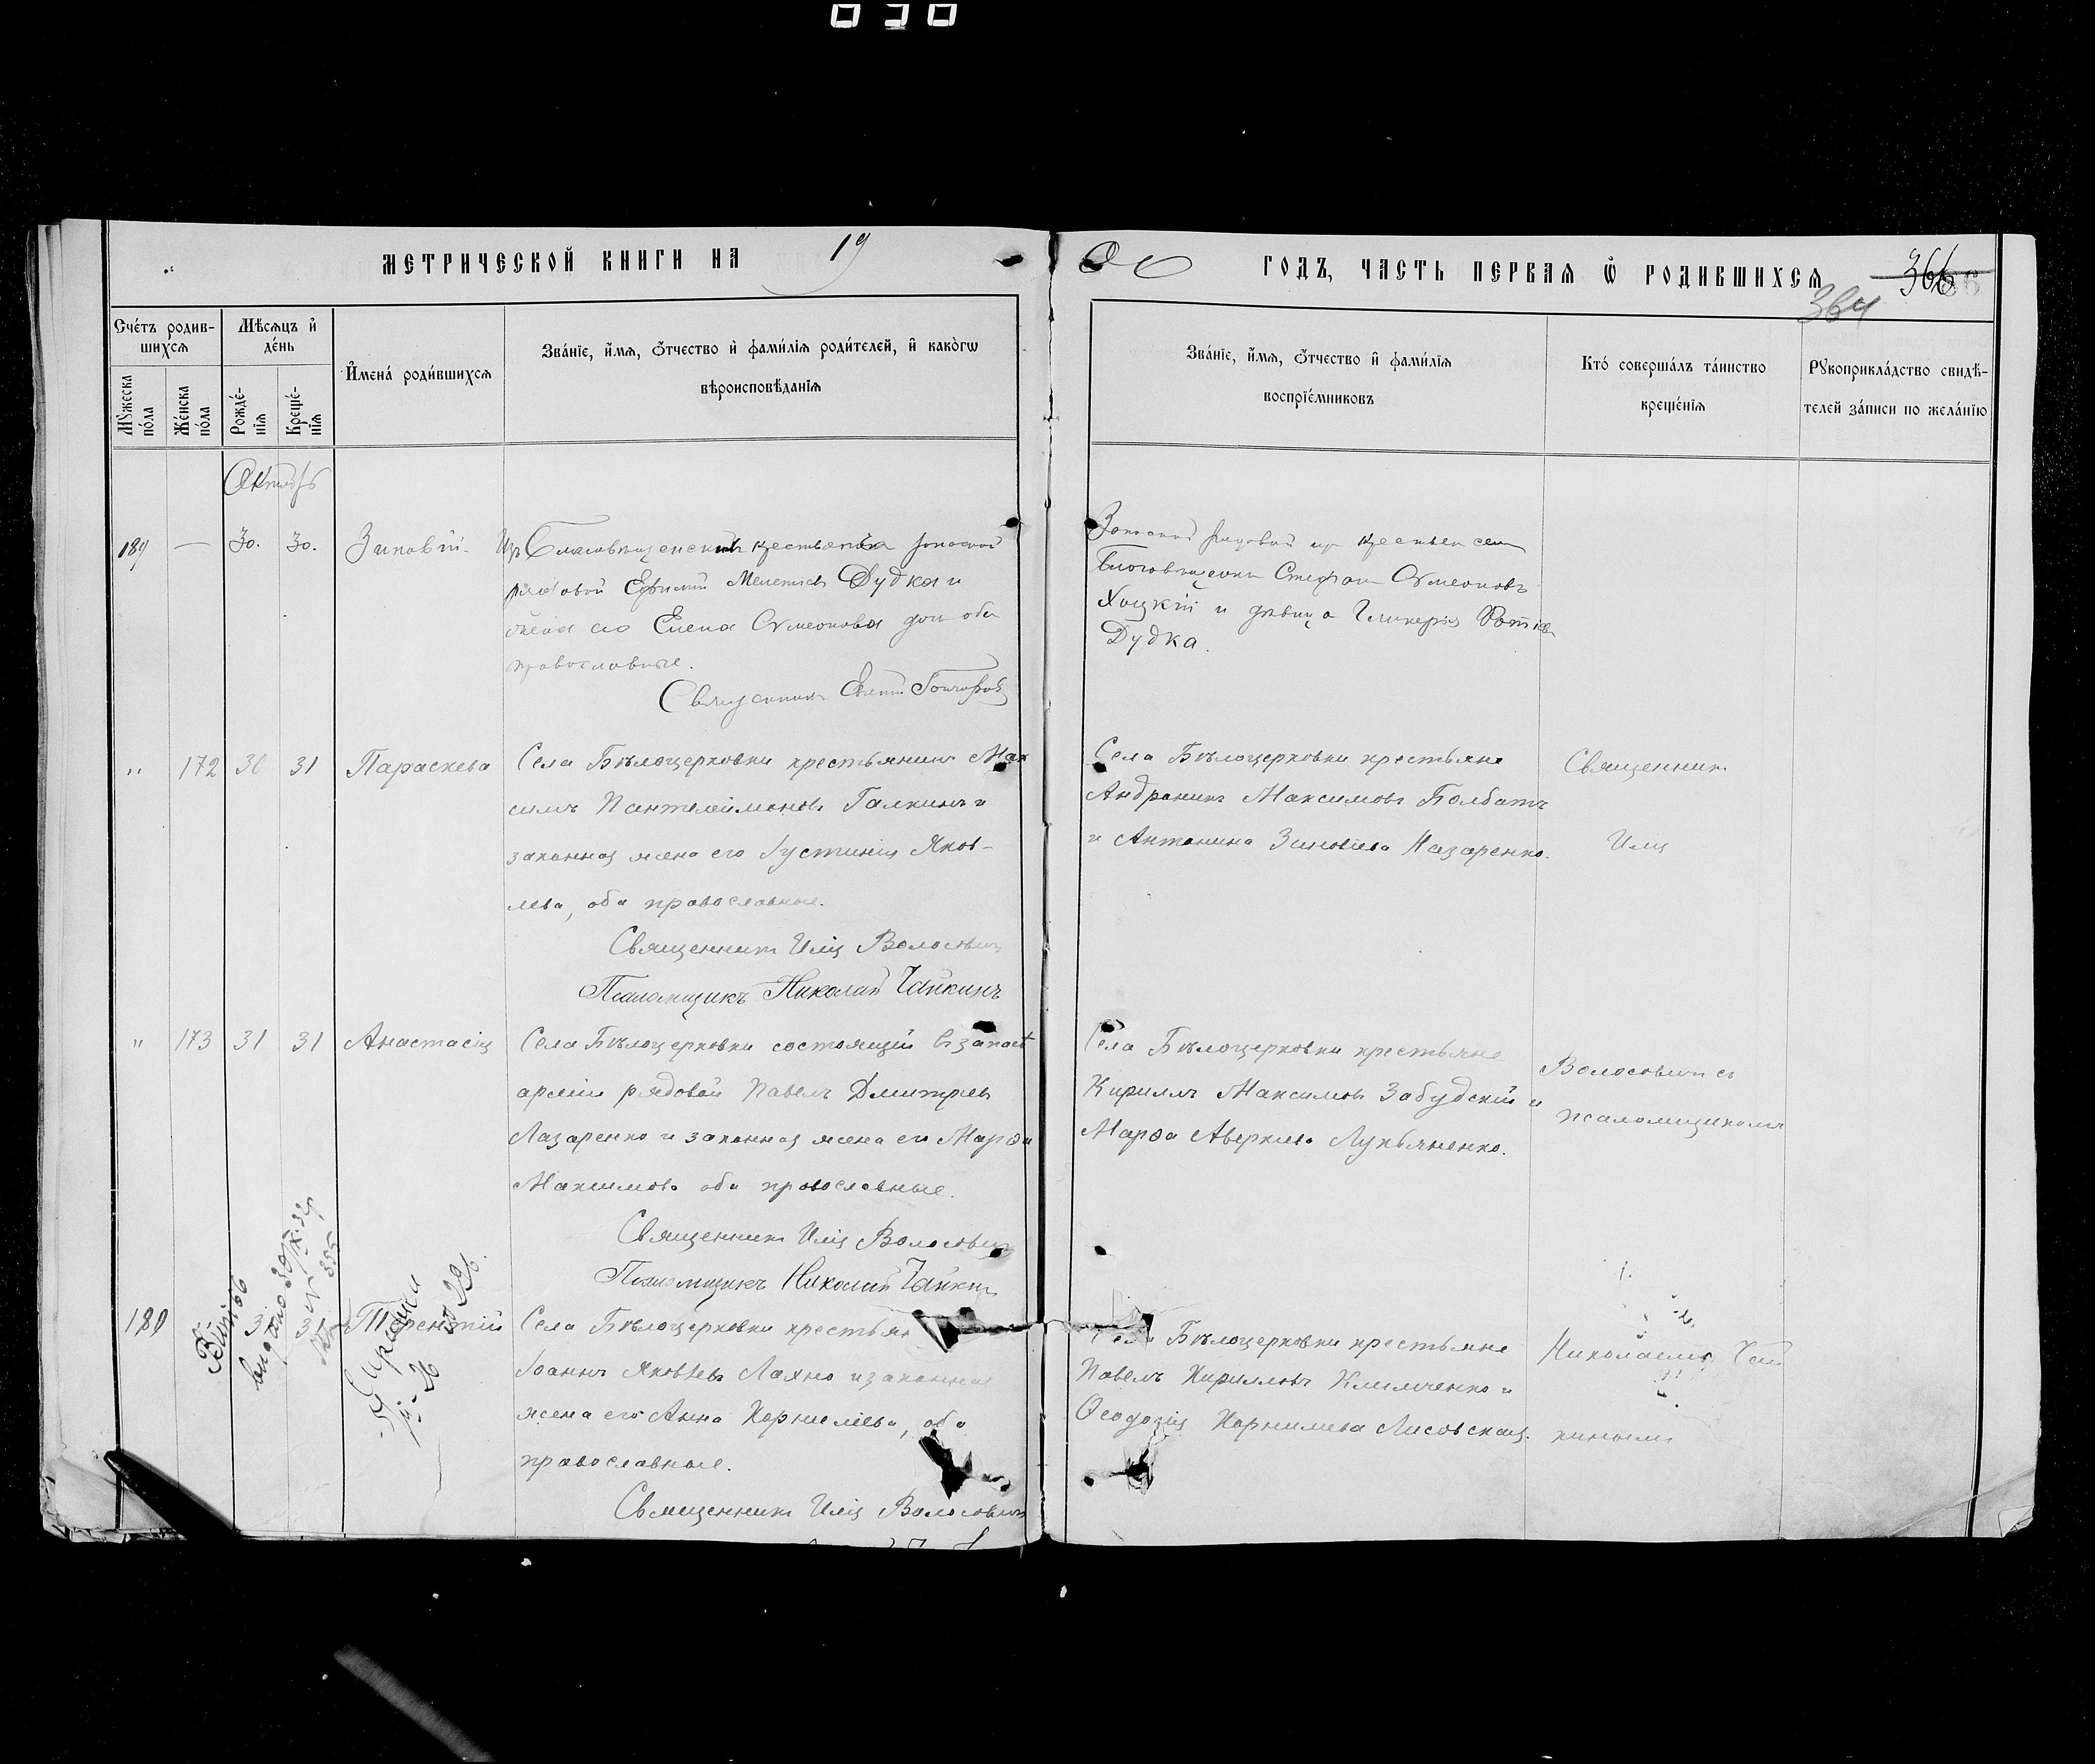 030
МЕТРИЧЕСКОЙ КНИГИ НА 19
00 ГОДЪ, ЧАСТЬ ПЕРВАЯ Ѿ РОДИВШИХСЯ 366
364
Счéтъ родив-
шихсѧ
Мꙋжеска пóла
Жéнска пóла
Мѣсѧцъ и҆ дéнь
Рождé-
нїѧ
Крещé-
нїѧ
И҆менá роди́вшихсѧ
Звáнїе, и҆́мѧ, ѻ҆́тчество и҆ фами́лїѧ роди́телей, и҆ какòгѡ
вѣроисповѣ́данїѧ
Звáнїе, и҆́мѧ, ѻ҆́тчество и҆ фами́лїѧ
воспрїéмниковъ
Ктó совершáлъ тáинство
крещéнїѧ
Рꙋкоприклáдство свидѣ́-
телей зáписи по желáнїю
Октябрь
189 — 30. 30. Зиновій
Изъ крестьянъ запасной
рядовой Ефимій Мелетіевъ Дудка и
жена его Елена Сѵмеонова оба
православные.
Священникъ Гончаровъ
Запасной рядовой из крестьян села
Благовѣщенки Стефанъ Сѵмеоновъ
Хоцкій и дѣвица Гликерія
Дудка.
" 172 30 31 Параскева
Села Бѣлоцерковки крестьянинъ Мак
симъ Пантелеймоновъ Галкинъ и
законная жена его Іустинія Яков-
лева, оба православные.
Священникъ Илія Волосовичъ
Псаломщикъ Николай Чайкинъ
Села Бѣлоцерковки крестьяне
Андроникъ Максимовъ Болбатъ
и Антонина Зиновіева Назаренко.
Священникъ
Илія
" 173 31 31 Анастасія
Села Бѣлоцерковки состоящій въ запасѣ
арміи рядовой Павелъ Дмитріевъ
Лазаренко и законная жена его Марѳа
Максимова оба православные.
Священникъ Илія Волосовичъ
Псаломщикъ Николай Чайкинъ
Села Бѣлоцерковки крестьяне
Кириллъ Максимовъ Забудскій и
Марѳа Аверкіева Лукьяненко.
Волосовичъ съ
псаломщикомъ
Терентій
Села Бѣлоцерковки крестьян
Іоаннъ Яковлевъ Лахно и законная
жена его Анна Корниліева, оба
православные.
Священникъ Илія Волосовичъ
Села Бѣлоцерковки крестьяне
Павелъ Кирилловъ Климченко и
Ѳеодосія Корнилиева Лисовская.
Николаемъ Чай
кинымъ